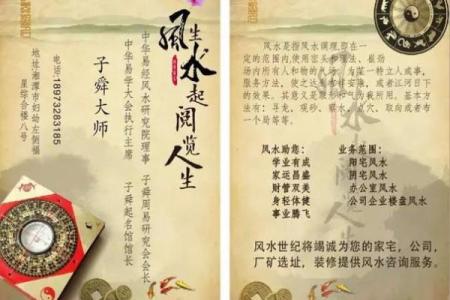 風生水起阅览人生
中华易经风水研究院理事 子舜周易研究会会长
中华易学大会执行主席 子舜起名馆馆长
子舜大师
电话:18973283185
地址湘潭市妇幼左侧福
星综合楼八号
风水是指风水调理,即在一
定的范围内,使用密头和理法,催动
场内所有人和物的气场,为某一特立人或事,
服务方法,使之达到布样安埃,或者江河日下
的效果。其意义是以聚和似为我所用。基本方
法有:寻龙,观砂,察水,点穴,取向或者布
一个局等等。
风水助您: 业务范围:
学业有成 阳宅风水
家运昌盛 阴宅风水
财管双美 办公室风水
身轻体健 公司企业楼盘风水
事业腾飞
风水世纪将竭诚为您的家宅,公司,
厂矿选址,装修提供风水咨询服务。